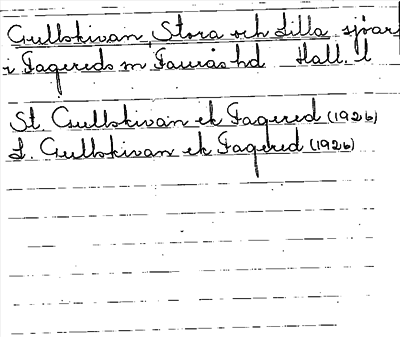 Gullskivan, Stora och Lilla sjöar
i Fagereds sn Faurås hd Hall. l
St. Gullskivan ek Fagered (1926)
L. Gullskivan ek Fagered (1926)